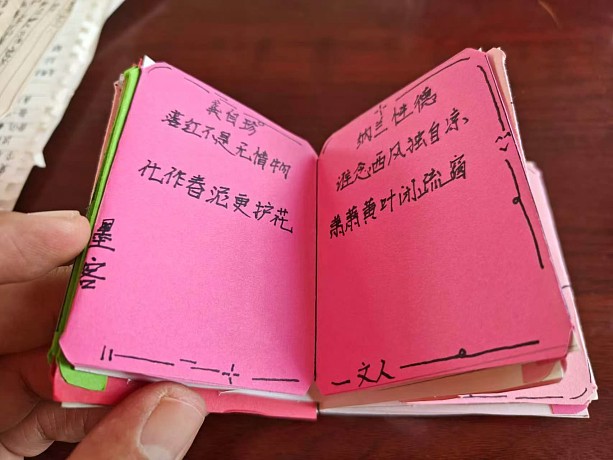 龚自珍
落红不是无情物
化作春泥更护花
墨客
纳兰性德
谁念西风独自凉、
萧萧黄叶闭疏窗
文人